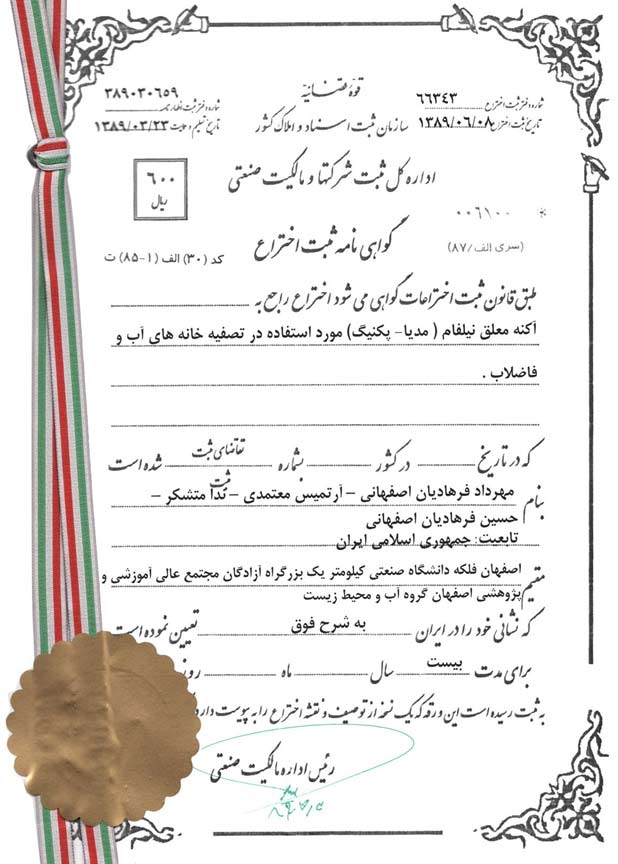 قوه قضائیه
شماره دفتر ثبت اختراع ۶۶۳۴۳
۳۸۹۰۳۰۶۵۹ شماره دفتر ثبت اظهارنامه
سازمان ثبت اسناد و املاک کشور
تاریخ ثبت اختراع ۱۳۸۹/۰۶/۰۸
تاریخ تسلیم و حمایت ۱۳۸۹/۰۳/۲۳
اداره کل ثبت شرکتها و مالکیت صنعتی
۶۰۰
ریال
۰۰۶۱۰۰
(سری الف/۸۷)
گواهی نامه ثبت اختراع
کد (۳۰) الف (۱-۸۵) ت
طبق قانون ثبت اختراعات گواهی می شود اختراع راجع به
آکنه معلق نیلفام ( مدیا- پکنیگ) مورد استفاده در تصفیه خانه های آب و
فاضلاب .
که در تاریخ در کشور بشماره تقاضای ثبت شده است
ثبت
بنام مهرداد فرهادیان اصفهانی – آرتمیس معتمدی – ندا متشکر –
حسین فرهادیان اصفهانی
تابعیت: جمهوری اسلامی ایران
مقیم اصفهان فلکه دانشگاه صنعتی کیلومتر یک بزرگراه آزادگان مجتمع عالی آموزشی و
پژوهشی اصفهان گروه آب و محیط زیست
که نشانی خود را در ایران به شرح فوق تعیین نموده است
برای مدت بیست سال ماه روز
به ثبت رسیده است این ورقه که یک نسخه از توصیف و نقشه اختراع را به پیوست دارد
رئیس اداره مالکیت صنعتی